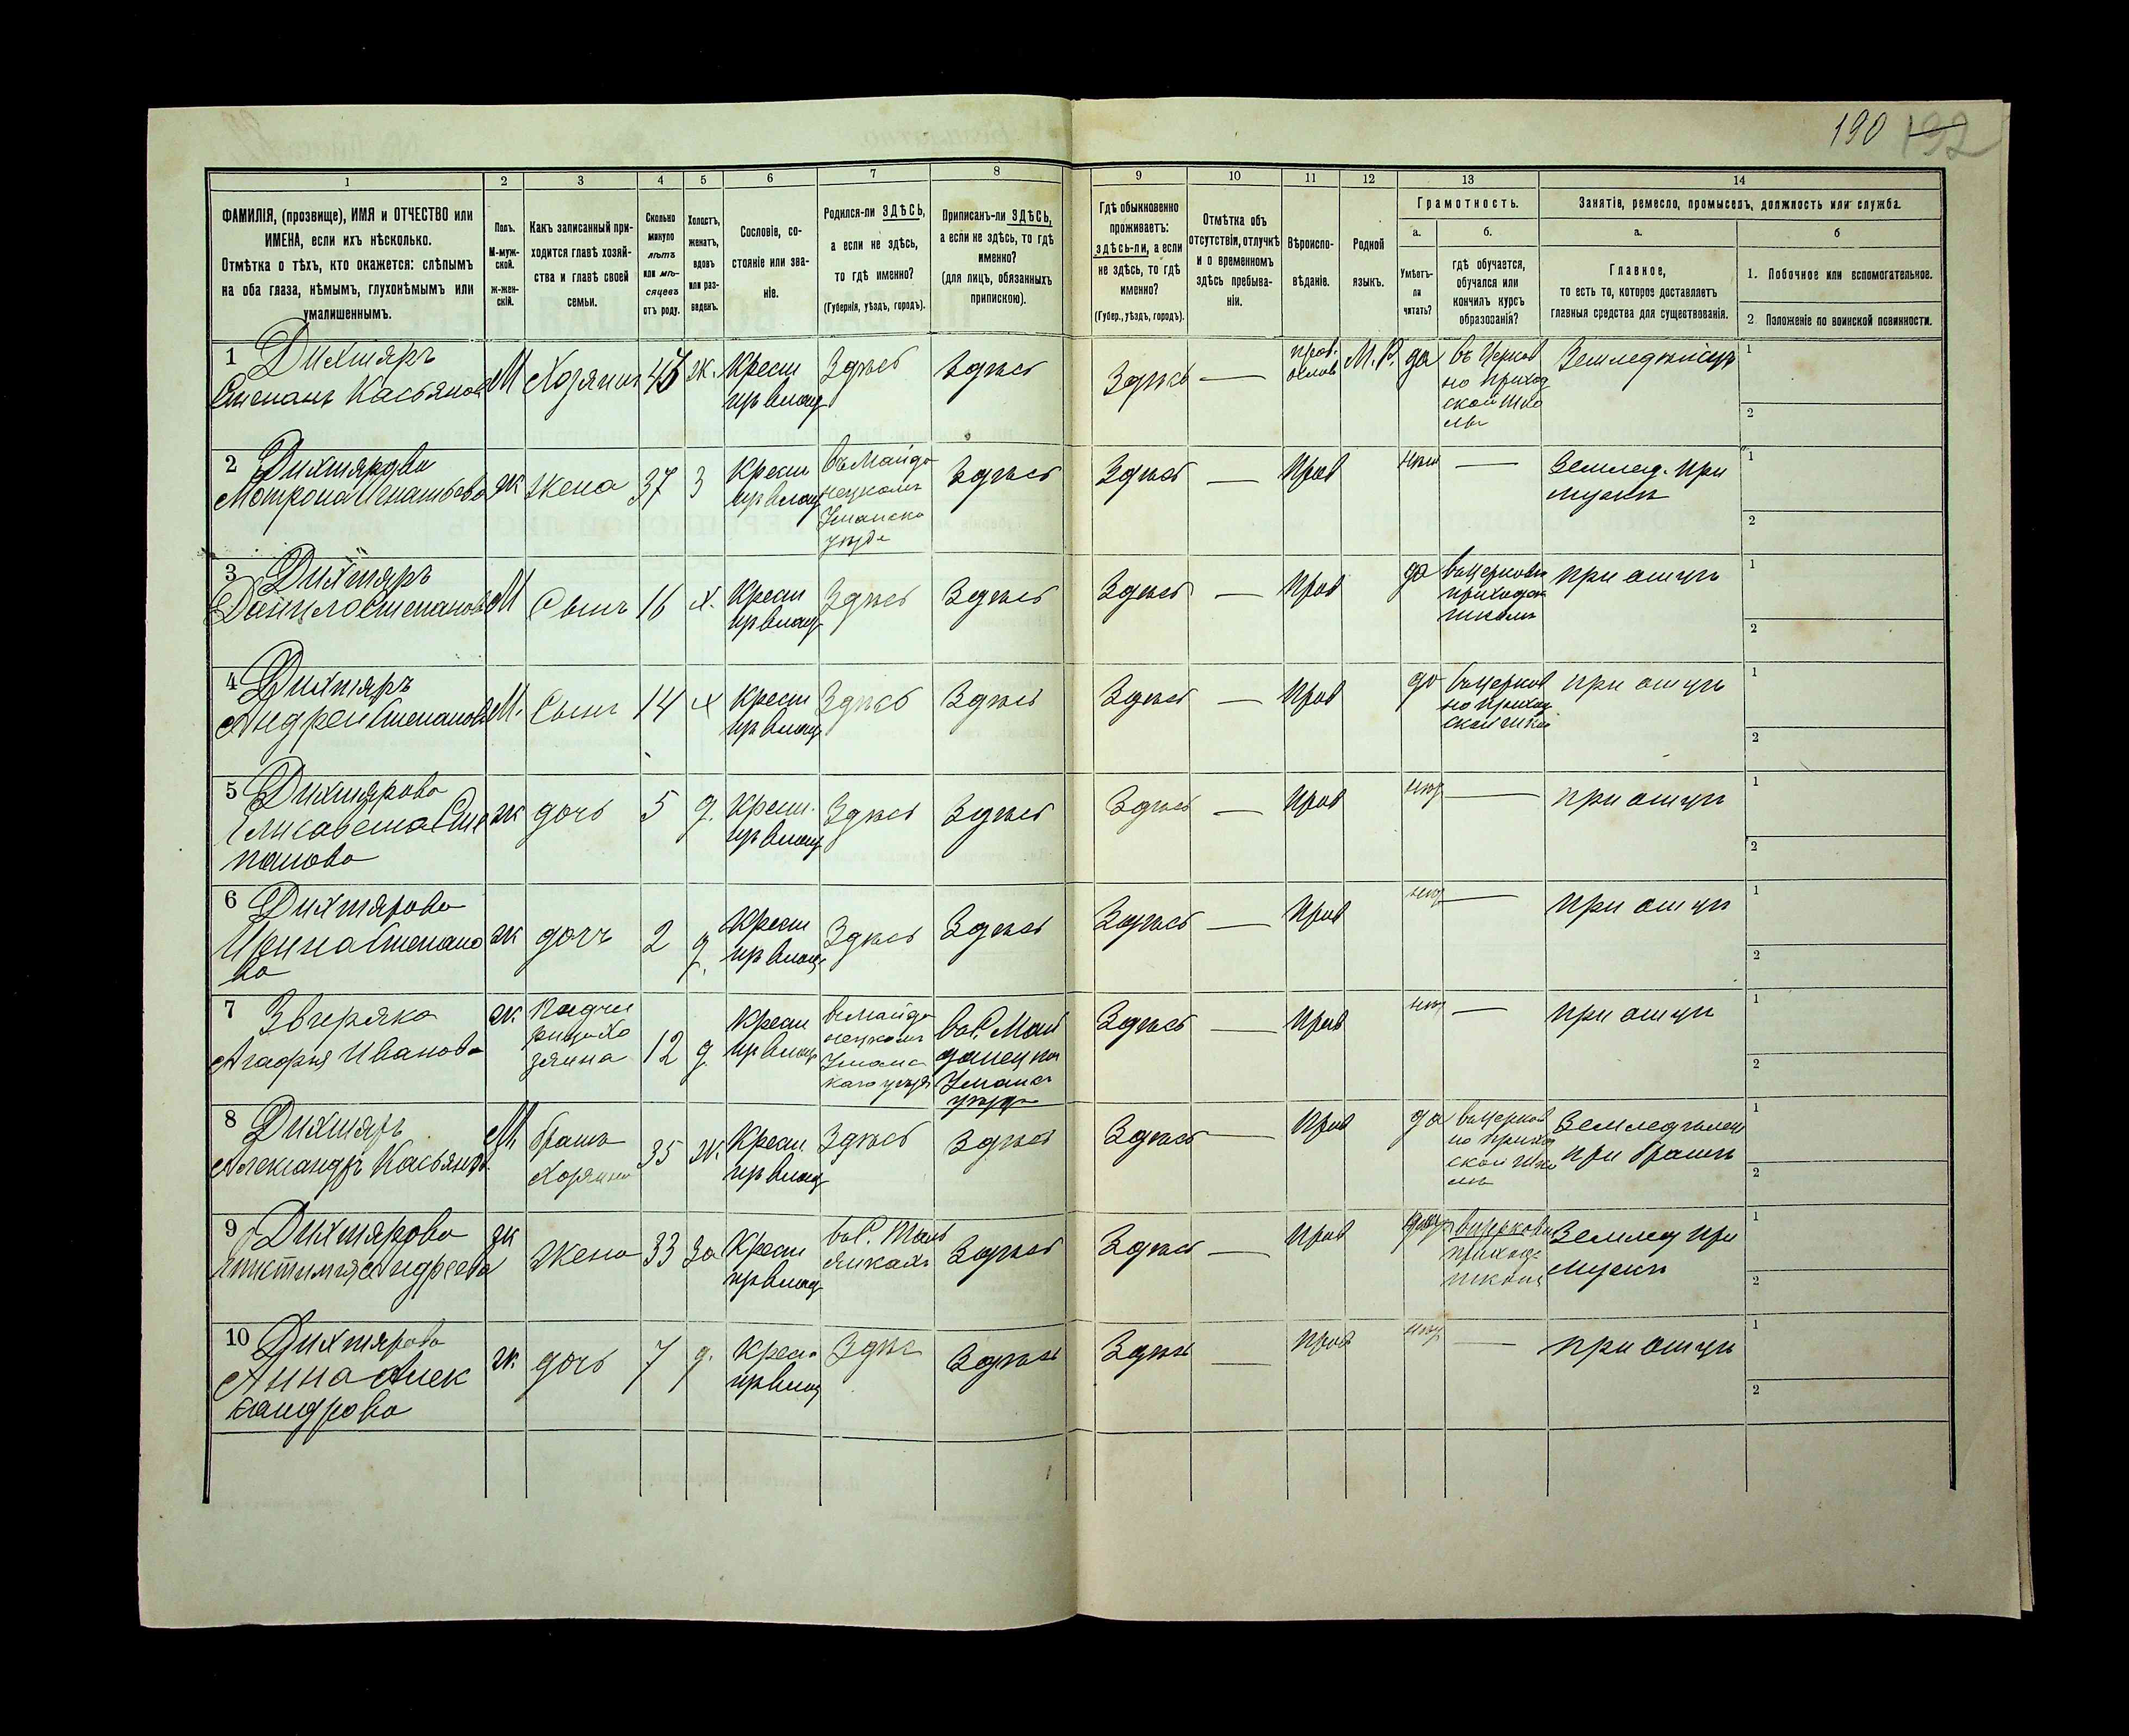 190 192
1 2 3 4 5 6 7 8 9 10 11 12 13 14
ФАМИЛІЯ, (прозвище), ИМЯ и ОТЧЕСТВО или
ИМЕНА, если ихъ нѣсколько.
Отмѣтка о тѣхъ, кто окажется: слѣпымъ
на оба глаза, нѣмымъ, глухонѣмымъ или
умалишеннымъ.
Полъ.
М-муж-
ской.
Ж-жен-
скій.
Какъ записанный при-
ходится главѣ хозяй-
ства и главѣ своей
семьи.
Сколько
минуло
лѣтъ
или мѣ-
сяцевъ
отъ роду.
Холостъ,
женатъ,
вдовъ
или раз-
веденъ.
Сословіе, со-
стояніе или зва-
ніе.
Родился-ли ЗДѢСЬ,
а если не здѣсь,
то гдѣ именно?
(Губернія, уѣздъ, городъ).
Приписанъ-ли ЗДѢСЬ,
а если не здѣсь, то гдѣ
именно?
(для лицъ, обязанныхъ
припискою).
Гдѣ обыкновенно
проживаетъ:
здѣсь-ли, а если
не здѣсь, то гдѣ
именно?
(Губер., уѣздъ, городъ).
Отмѣтка объ
отсутствіи, отлучкѣ
и о временномъ
здѣсь пребыва-
ніи.
Вѣроиспо-
вѣданіе.
Родной
языкъ.
Грамотность.
а.
Умѣетъ-
ли
читать?
б.
гдѣ обучается,
обучался или
кончилъ курсъ
образованія?
Занятіе, ремесло, промыселъ, должность или служба.
а.
Главное,
то есть то, которое доставляетъ
главныя средства для существованія.
б
1. Побочное или вспомогательное.
2 Положеніе по воинской повинности.
1 Дихтяръ
Степанъ Касьяновъ М Хозяинъ ж. Крест
изъ влад Здѣсь Здѣсь Здѣсь — прав-
ослав М.Р. да въ Церков
но приход
ской шко
лѣ Земледѣлецъ 1
2
2 Дихтярова
Мотрона Игнатьева ж жена 37 З Крест
изъ влад въ Майда
нецкомъ
Уманско
уѣзде Здѣсь Здѣсь — прав нѣт — Землед. при
мужѣ 1
2
3 Дихтяръ
Данило Степановъ М Сынъ 16 х. Крест
изъ влад Здѣсь Здѣсь Здѣсь — прав да въ церковн
приходск
школѣ при отцѣ 1
2
4 Дихтяръ
Андрей Степановъ М. Сынъ 14 х Крест
изъ влад Здѣсь Здѣсь Здѣсь — прав да въ церков
но приход
ской шко при отцѣ 1
2
5 Дихтярова
Елисавета Сте
панова ж дочь 5 д. Крест.
изъ влад Здѣсь Здѣсь Здѣсь — прав нѣт — при отцѣ 1
2
6 Дихтярова
Ирина Степано
ва ж дочь 2 д. Крест
изъ влад Здѣсь Здѣсь Здѣсь — прав нѣт — при отцѣ 1
2
7 Звиряка
Агафия Иванова ж. Падче
рица хо
зяина 12 д. Крест
изъ влад въ Майда
нецкомъ
Уманс
каго уѣзда въ с. Май
данецкѣ
Уманск
уѣзда Здѣсь — прав нѣт — при отцѣ 1
2
8 Дихтяръ
Александръ Касьянов М. братъ
Хозяина 35 ж. Крест.
изъ влад Здѣсь Здѣсь Здѣсь — прав да въ церков
но приход
ской шко
лѣ Земледѣлец
при братѣ 1
2
9 Дихтярова
Андреева ж жена 33 За Крест
изъ влад въ с. Таль
янкахъ Здѣсь Здѣсь — прав въ церковн
приход
школѣ Землед при
мужѣ 1
2
10 Дихтярова
Анна Алек
сандрова ж. дочь 7 д. Крест
изъ влад Здѣс Здѣсь Здѣсь — прав нѣт — при отцѣ 1
2